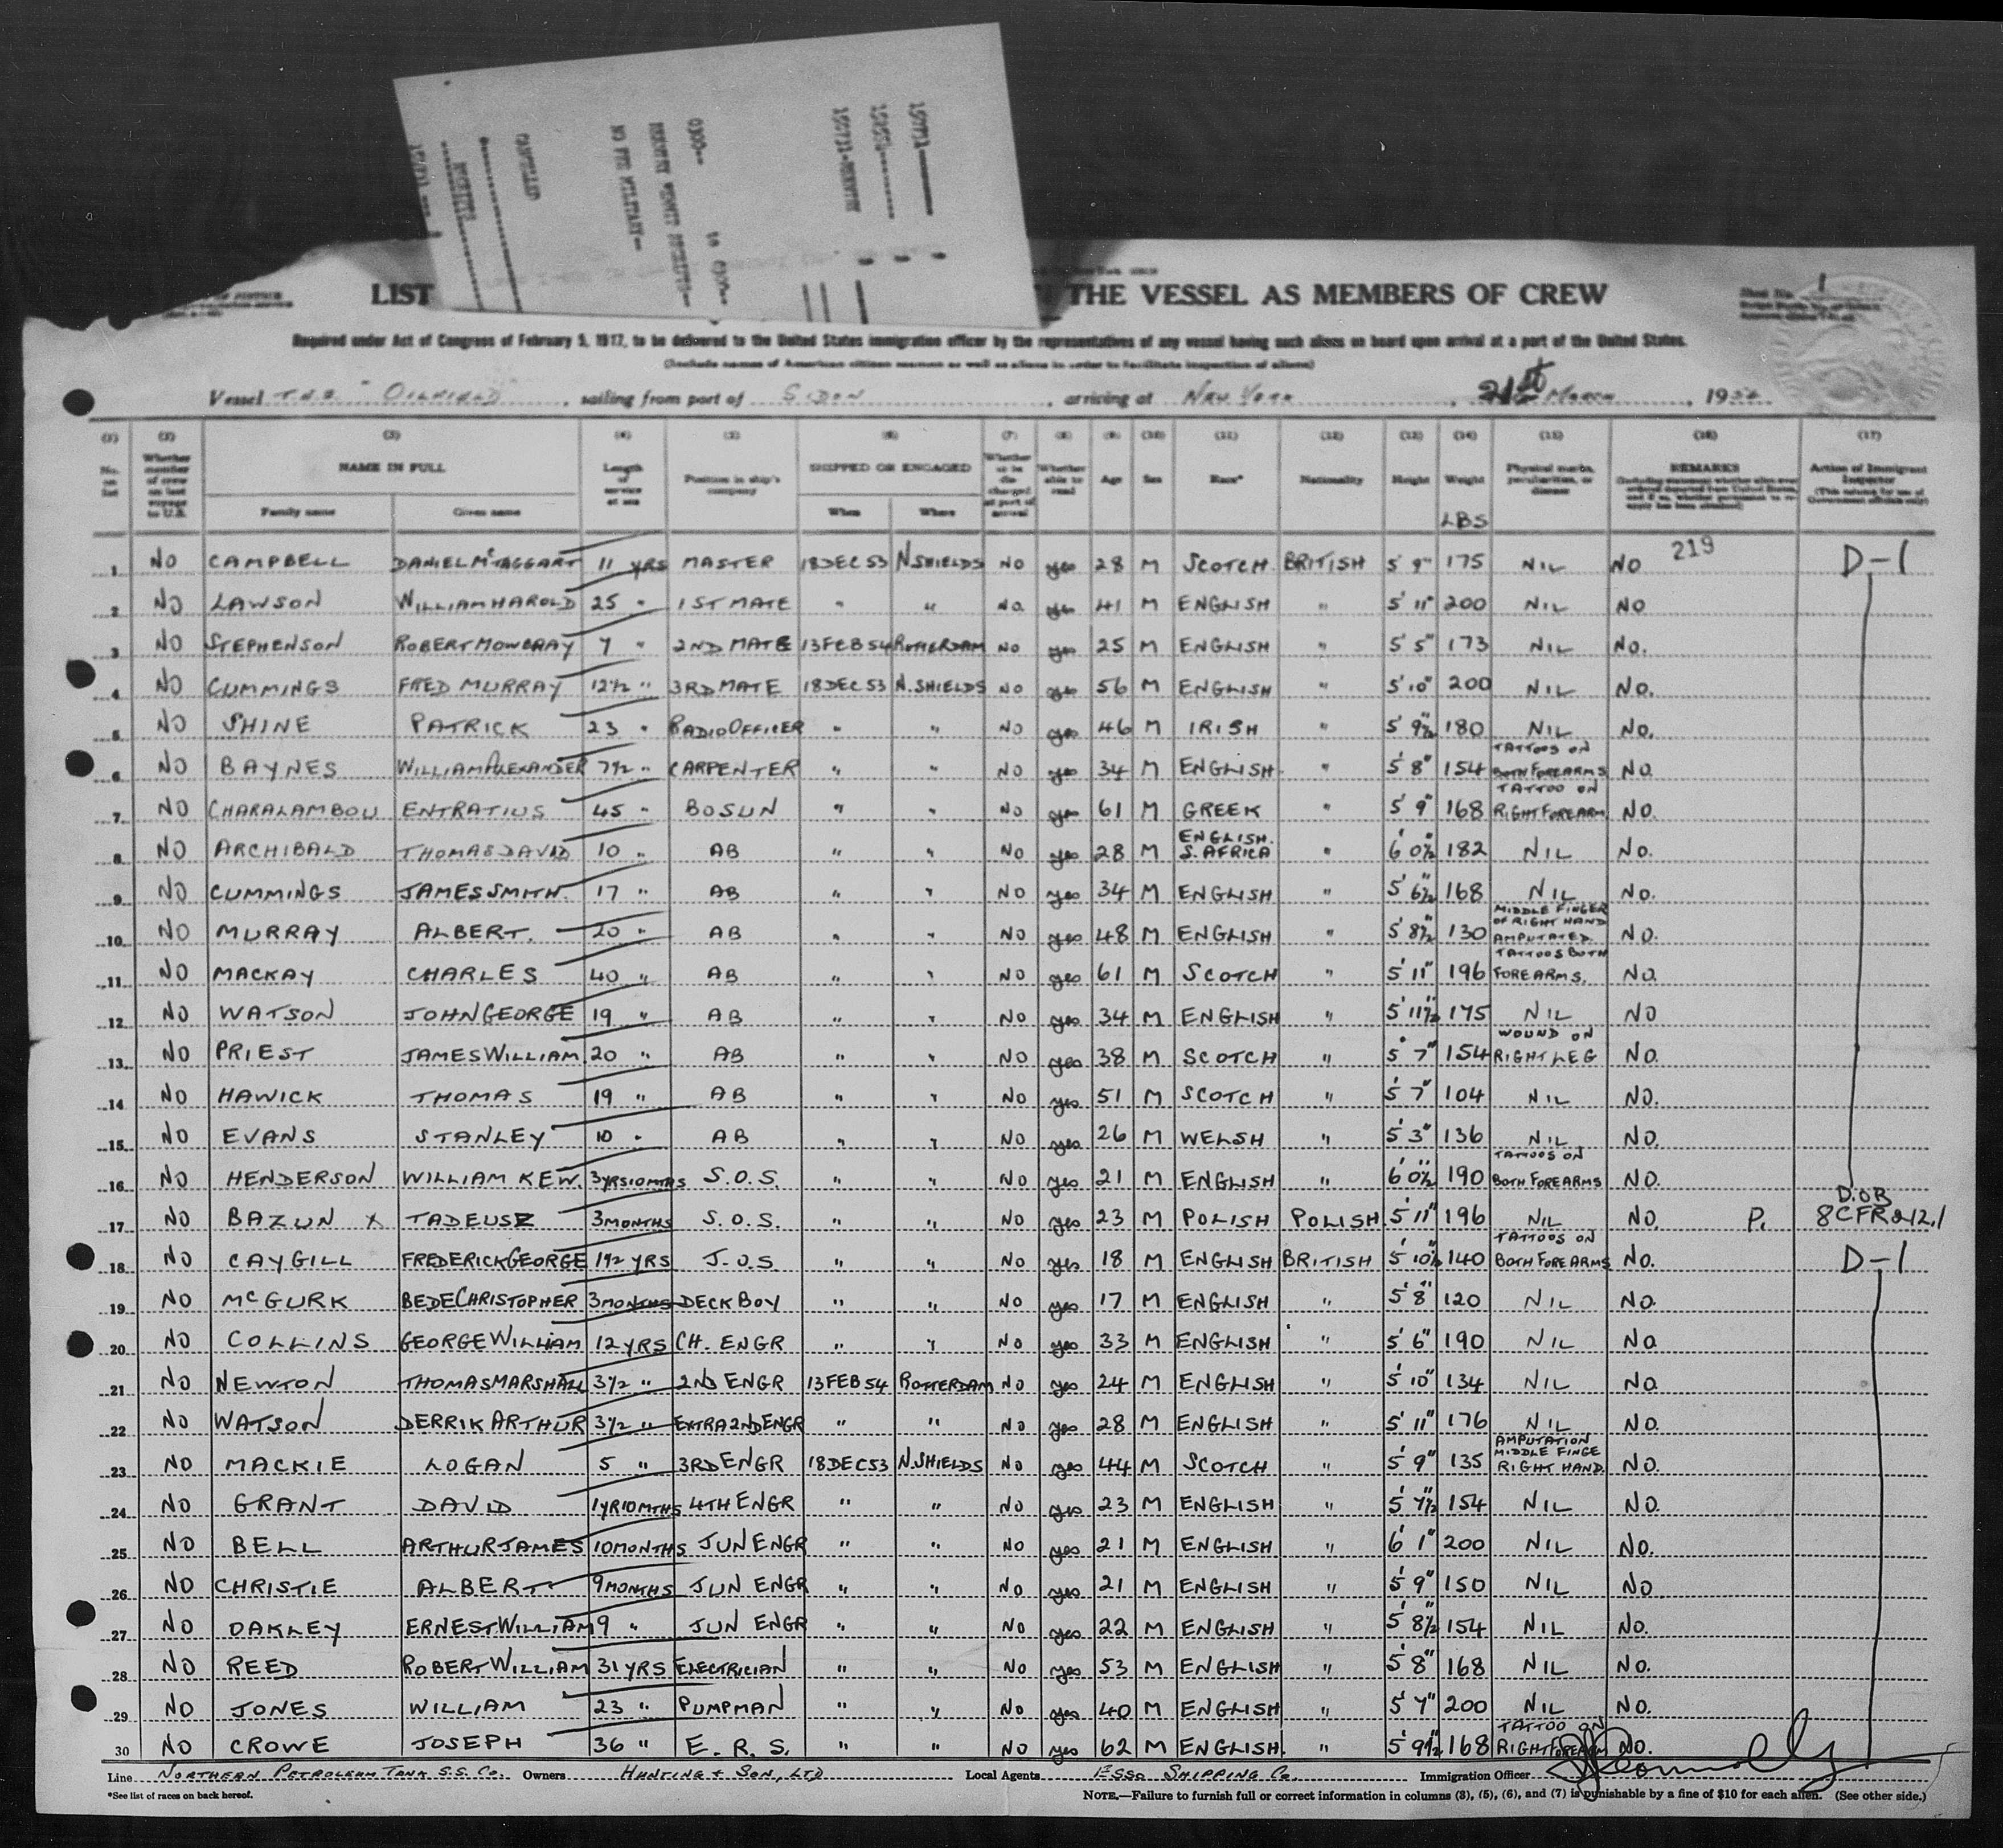 LIST THE VESSEL AS MEMBERS OF CREW
Required under Act of Congress of February 5, 1917, to be delivered to the United States immigration officer by the representatives of any vessel having such aliens on board upon arrival at a port of the United States.
(Include names of American citizen seamen as well as aliens in order to facilitate inspection of aliens)
Vessel "OILFIELD", sailing from port of SIDON, arriving at NEW YORK, 21st MARCH, 1954
(1) (2) (3) (4) (5) (6) (7) (8) (9) (10) (11) (12) (13) (14) (15) (16) (17)
No. on list Whether member of crew on last voyage to U.S. NAME IN FULL Length of service at sea Position in ship's company SHIPPED OR ENGAGED Whether to be discharged at port of arrival Whether able to read Age Sex Race* Nationality Height Weight Physical marks, peculiarities, or disease REMARKS Action of Immigrant Inspector
Family name Given name When Where LBS
1 NO CAMPBELL DANIEL McTAGGART 11 YRS MASTER 18 DEC 53 N. SHIELDS NO yes 28 M SCOTCH BRITISH 5' 9" 175 NIL NO 219 D-1
2 NO LAWSON WILLIAM HAROLD 25 " 1ST MATE " " NO yes 41 M ENGLISH " 5' 11" 200 NIL NO
3 NO STEPHENSON ROBERT MOWBRAY 7 " 2ND MATE 13 FEB 54 ROTTERDAM NO yes 25 M ENGLISH " 5' 5" 173 NIL NO.
4 NO CUMMINGS FRED MURRAY 12½ " 3RD MATE 18 DEC 53 N. SHIELDS NO yes 56 M ENGLISH " 5' 10" 200 NIL NO.
5 NO SHINE PATRICK 23 " RADIO OFFICER " " NO yes 46 M IRISH " 5' 9½" 180 NIL NO.
6 NO BAYNES WILLIAM ALEXANDER 7½ " CARPENTER " " NO yes 34 M ENGLISH " 5' 8" 154 TATTOOS ON BOTH FOREARMS NO.
7 NO CHARALAMBOU ENTRATIUS 45 " BOSUN " " NO yes 61 M GREEK 5' 9" 168 TATTOO ON RIGHT FOREARM NO.
8 NO ARCHIBALD THOMAS DAVID 10 " AB " " NO yes 28 M ENGLISH. S. AFRICA " 6' 0½" 182 NIL NO.
9 NO CUMMINGS JAMES SMITH. 17 " AB " " NO yes 34 M ENGLISH " 5' 6½" 168 NIL NO.
10 NO MURRAY ALBERT. 20 " AB " " NO yes 48 M ENGLISH " 5' 8½" 130 MIDDLE FINGER OF RIGHT HAND AMPUTATED NO.
11 NO MACKAY CHARLES 40 " AB " " NO yes 61 M SCOTCH " 5' 11" 196 TATTOOS BOTH FOREARMS. NO.
12 NO WATSON JOHN GEORGE 19 " AB " " NO yes 34 M ENGLISH " 5' 11½" 175 NIL NO
13 NO PRIEST JAMES WILLIAM. 20 " AB " " NO yes 38 M SCOTCH " 5' 7" 154 WOUND ON RIGHT LEG NO.
14 NO HAWICK THOMAS 19 " AB " " NO yes 51 M SCOTCH " 5' 7" 104 NIL NO.
15 NO EVANS STANLEY 10 " AB " " NO yes 26 M WELSH " 5' 3" 136 NIL NO.
16 NO HENDERSON WILLIAM KEW. 3 YRS 10 MTHS S.O.S. " " NO yes 21 M ENGLISH " 6' 0½" 190 TATTOOS ON BOTH FOREARMS NO.
17 NO BAZUN X TADEUSZ 3 MONTHS S.O.S. " " NO yes 23 M POLISH POLISH 5' 11" 196 NIL NO. P. D.OB 8CFR212.1
18 NO CAYGILL FREDERICK GEORGE 1½ YRS J.O.S " " NO yes 18 M ENGLISH BRITISH 5' 10½" 140 TATTOOS ON BOTH FOREARMS NO. D-1
19 NO McGURK BEDE CHRISTOPHER 3 MONTHS DECK BOY " " NO yes 17 M ENGLISH " 5' 8" 120 NIL NO.
20 NO COLLINS GEORGE WILLIAM 12 YRS CH. ENGR " " NO yes 33 M ENGLISH " 5' 6" 190 NIL NO
21 NO NEWTON THOMAS MARSHALL 3½ " 2ND ENGR 13 FEB 54 ROTTERDAM NO yes 24 M ENGLISH " 5' 10" 134 NIL NO
22 NO WATSON DERRIK ARTHUR 3½ " EXTRA 2ND ENGR " " NO yes 28 M ENGLISH " 5' 11" 176 NIL NO.
23 NO MACKIE LOGAN 5 " 3RD ENGR 18 DEC 53 N. SHIELDS NO yes 44 M SCOTCH " 5' 9" 135 AMPUTATION MIDDLE FINGE RIGHT HAND. NO.
24 NO GRANT DAVID 1 YR 10 MTHS 4TH ENGR " " NO yes 23 M ENGLISH " 5' 7½" 154 NIL NO.
25 NO BELL ARTHUR JAMES 10 MONTHS JUN ENGR " " NO yes 21 M ENGLISH " 6' 1" 200 NIL NO.
26 NO CHRISTIE ALBERT 9 MONTHS JUN ENGR " " NO yes 21 M ENGLISH " 5' 9" 150 NIL NO
27 NO OAKLEY ERNEST WILLIAM 9 " JUN ENGR " " NO yes 22 M ENGLISH " 5' 8½" 154 NIL NO.
28 NO REED ROBERT WILLIAM 31 YRS ELECTRICIAN " " NO yes 53 M ENGLISH " 5' 8" 168 NIL NO.
29 NO JONES WILLIAM 23 " PUMPMAN " " NO yes 40 M ENGLISH " 5' 7" 200 NIL NO.
30 NO CROWE JOSEPH 36 " E. R. S. " " NO yes 62 M ENGLISH. " 5' 9½" 168 TATTOO ON RIGHT FOREARM NO.
Line NORTHERN PETROLEUM TANK S.S. Co. Owners HUNTING & SON, LTD Local Agents ESSO SHIPPING Co. Immigration Officer
*See list of races on back hereof. NOTE.—Failure to furnish full or correct information in columns (3), (5), (6), and (7) is punishable by a fine of $10 for each alien. (See other side.)